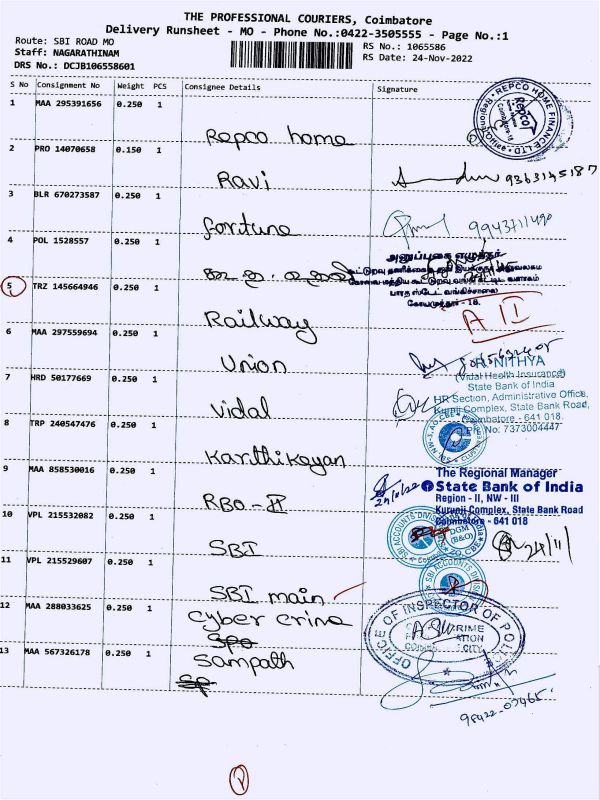 THE PROFESSIONAL COURIERS, Coimbatore
Delivery Runsheet - MO - Phone No.:0422-3505555 - Page No.:1
Route: SBI ROAD MO
Staff: NAGARATHINAM
DRS No.: DCJB106558601
RS No.: 1065586
RS Date: 24-Nov-2022
S No Consignment No Weight PCS Consignee Details Signature
1 MAA 295391656 0.250 1
Repco home
REPCO HOME FINANCE LTD
Repco
2 PRO 14070658 0.150 1
Ravi
9363145187
3 BLR 670273587 0.250 1
fortune
4 POL 1528557 0.250 1
அனுப்புகை எழுத்தர்
கோயமுத்தூர் - 18.
5 TRZ 145664946 0.250 1
Railway
A II
6 MAA 297559694 0.250 1
Union
R. NITHYA
(Vidal Health Insurance)
State Bank of India
HR Section, Administrative Office,
Kurinji Complex, State Bank Road,
Coimbatore - 641 018.
No: 7373004447
7 HRD 50177669 0.250 1
Vidal
8 TRP 240547476 0.250 1
Karthikeyan
9 MAA 858530016 0.250 1
RBO-II
The Regional Manager
State Bank of India
Region - II, NW - III
Kurinji Complex, State Bank Road
Coimbatore - 641 018
10 VPL 215532082 0.250 1
SBI
SBI ACCOUNTS DIVISION
DGM
(B&O)
24/11
11 VPL 215529607 0.250 1
SBI main
SBI ACCOUNTS DIVISION
12 MAA 288033625 0.250 1
Cyber crime
OFFICE OF INSPECTOR OF POLICE
13 MAA 567326178 0.250 1
Sampath